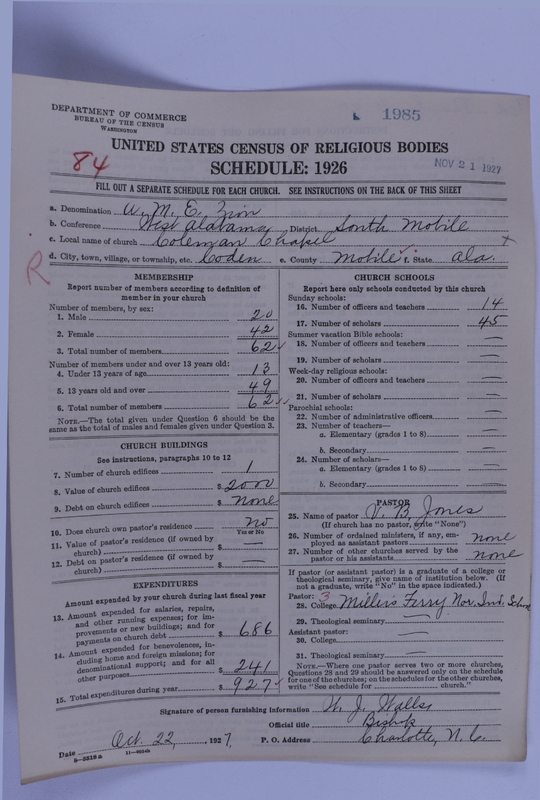 DEPARTMENT OF COMMERCE
BUREAU OF THE CENSUS
WASHINGTON
1985
UNITED STATES CENSUS OF RELIGIOUS BODIES
84
SCHEDULE: 1926
NOV 21 1927
FILL OUT A SEPARATE SCHEDULE FOR EACH CHURCH. SEE INSTRUCTIONS ON THE BACK OF THIS SHEET
a. Denomination A. M. E. Zion
b. Conference West Alabama District South Mobile
c. Local name of church Coleman Chapel
d. City, town, village, or township, etc. Coden e. County Mobile f. State Ala.
R
MEMBERSHIP
Report number of members according to definition of member in your church
Number of members, by sex:
1. Male 20
2. Female 42
3. Total number of members 62
Number of members under and over 13 years old:
4. Under 13 years of age 13
5. 13 years old and over 49
6. Total number of members 62
NOTE.—The total given under Question 6 should be same as the total of males and females given under Question 3.
CHURCH BUILDINGS
See instructions, paragraphs 10 to 12
7. Number of church edifices 1
8. Value of church edifices $ 2000
9. Debt on church edifices $ none
10. Does church own pastor's residence no
Yes or No
11. Value of pastor's residence (if owned by church) $ —
12. Debt on pastor's residence (if owned by church) $ —
EXPENDITURES
Amount expended by your church during last fiscal year
13. Amount expended for salaries, repairs, and other running expenses; for improvements or new buildings; and for payments on church debt $ 686
14. Amount expended for benevolences, including home and foreign missions; for denominational support; and for all other purposes $ 241
15. Total expenditures during year $ 927
CHURCH SCHOOLS
Report here only schools conducted by this church
Sunday schools:
16. Number of officers and teachers 14
17. Number of scholars 45
Summer vacation Bible schools:
18. Number of officers and teachers —
19. Number of scholars —
Week-day religious schools:
20. Number of officers and teachers —
21. Number of scholars —
Parochial schools:
22. Number of administrative officers —
23. Number of teachers—
a. Elementary (grades 1 to 8) —
b. Secondary —
24. Number of scholars—
a. Elementary (grades 1 to 8) —
b. Secondary —
PASTOR
25. Name of pastor V. B. Jones
(If church has no pastor, write "None")
26. Number of ordained ministers, if any, employed as assistant pastors none
27. Number of other churches served by the pastor or his assistants none
If pastor (or assistant pastor) is a graduate of a college or theological seminary, give name of institution below. (If not a graduate, write "No" in the space indicated.)
Pastor: 3
28. College Millers Ferry Nor. Ind. School
29. Theological seminary —
Assistant pastor:
30. College —
31. Theological seminary —
NOTE.—Where one pastor serves two or more churches, Questions 28 and 29 should be answered only on the schedule for one of the churches; on the schedules for the other churches, write "See schedule for church."
Signature of person furnishing information W. J. Walls
Official title Bishop
Date Oct. 22, 1927. P. O. Address Charlotte, N. C.